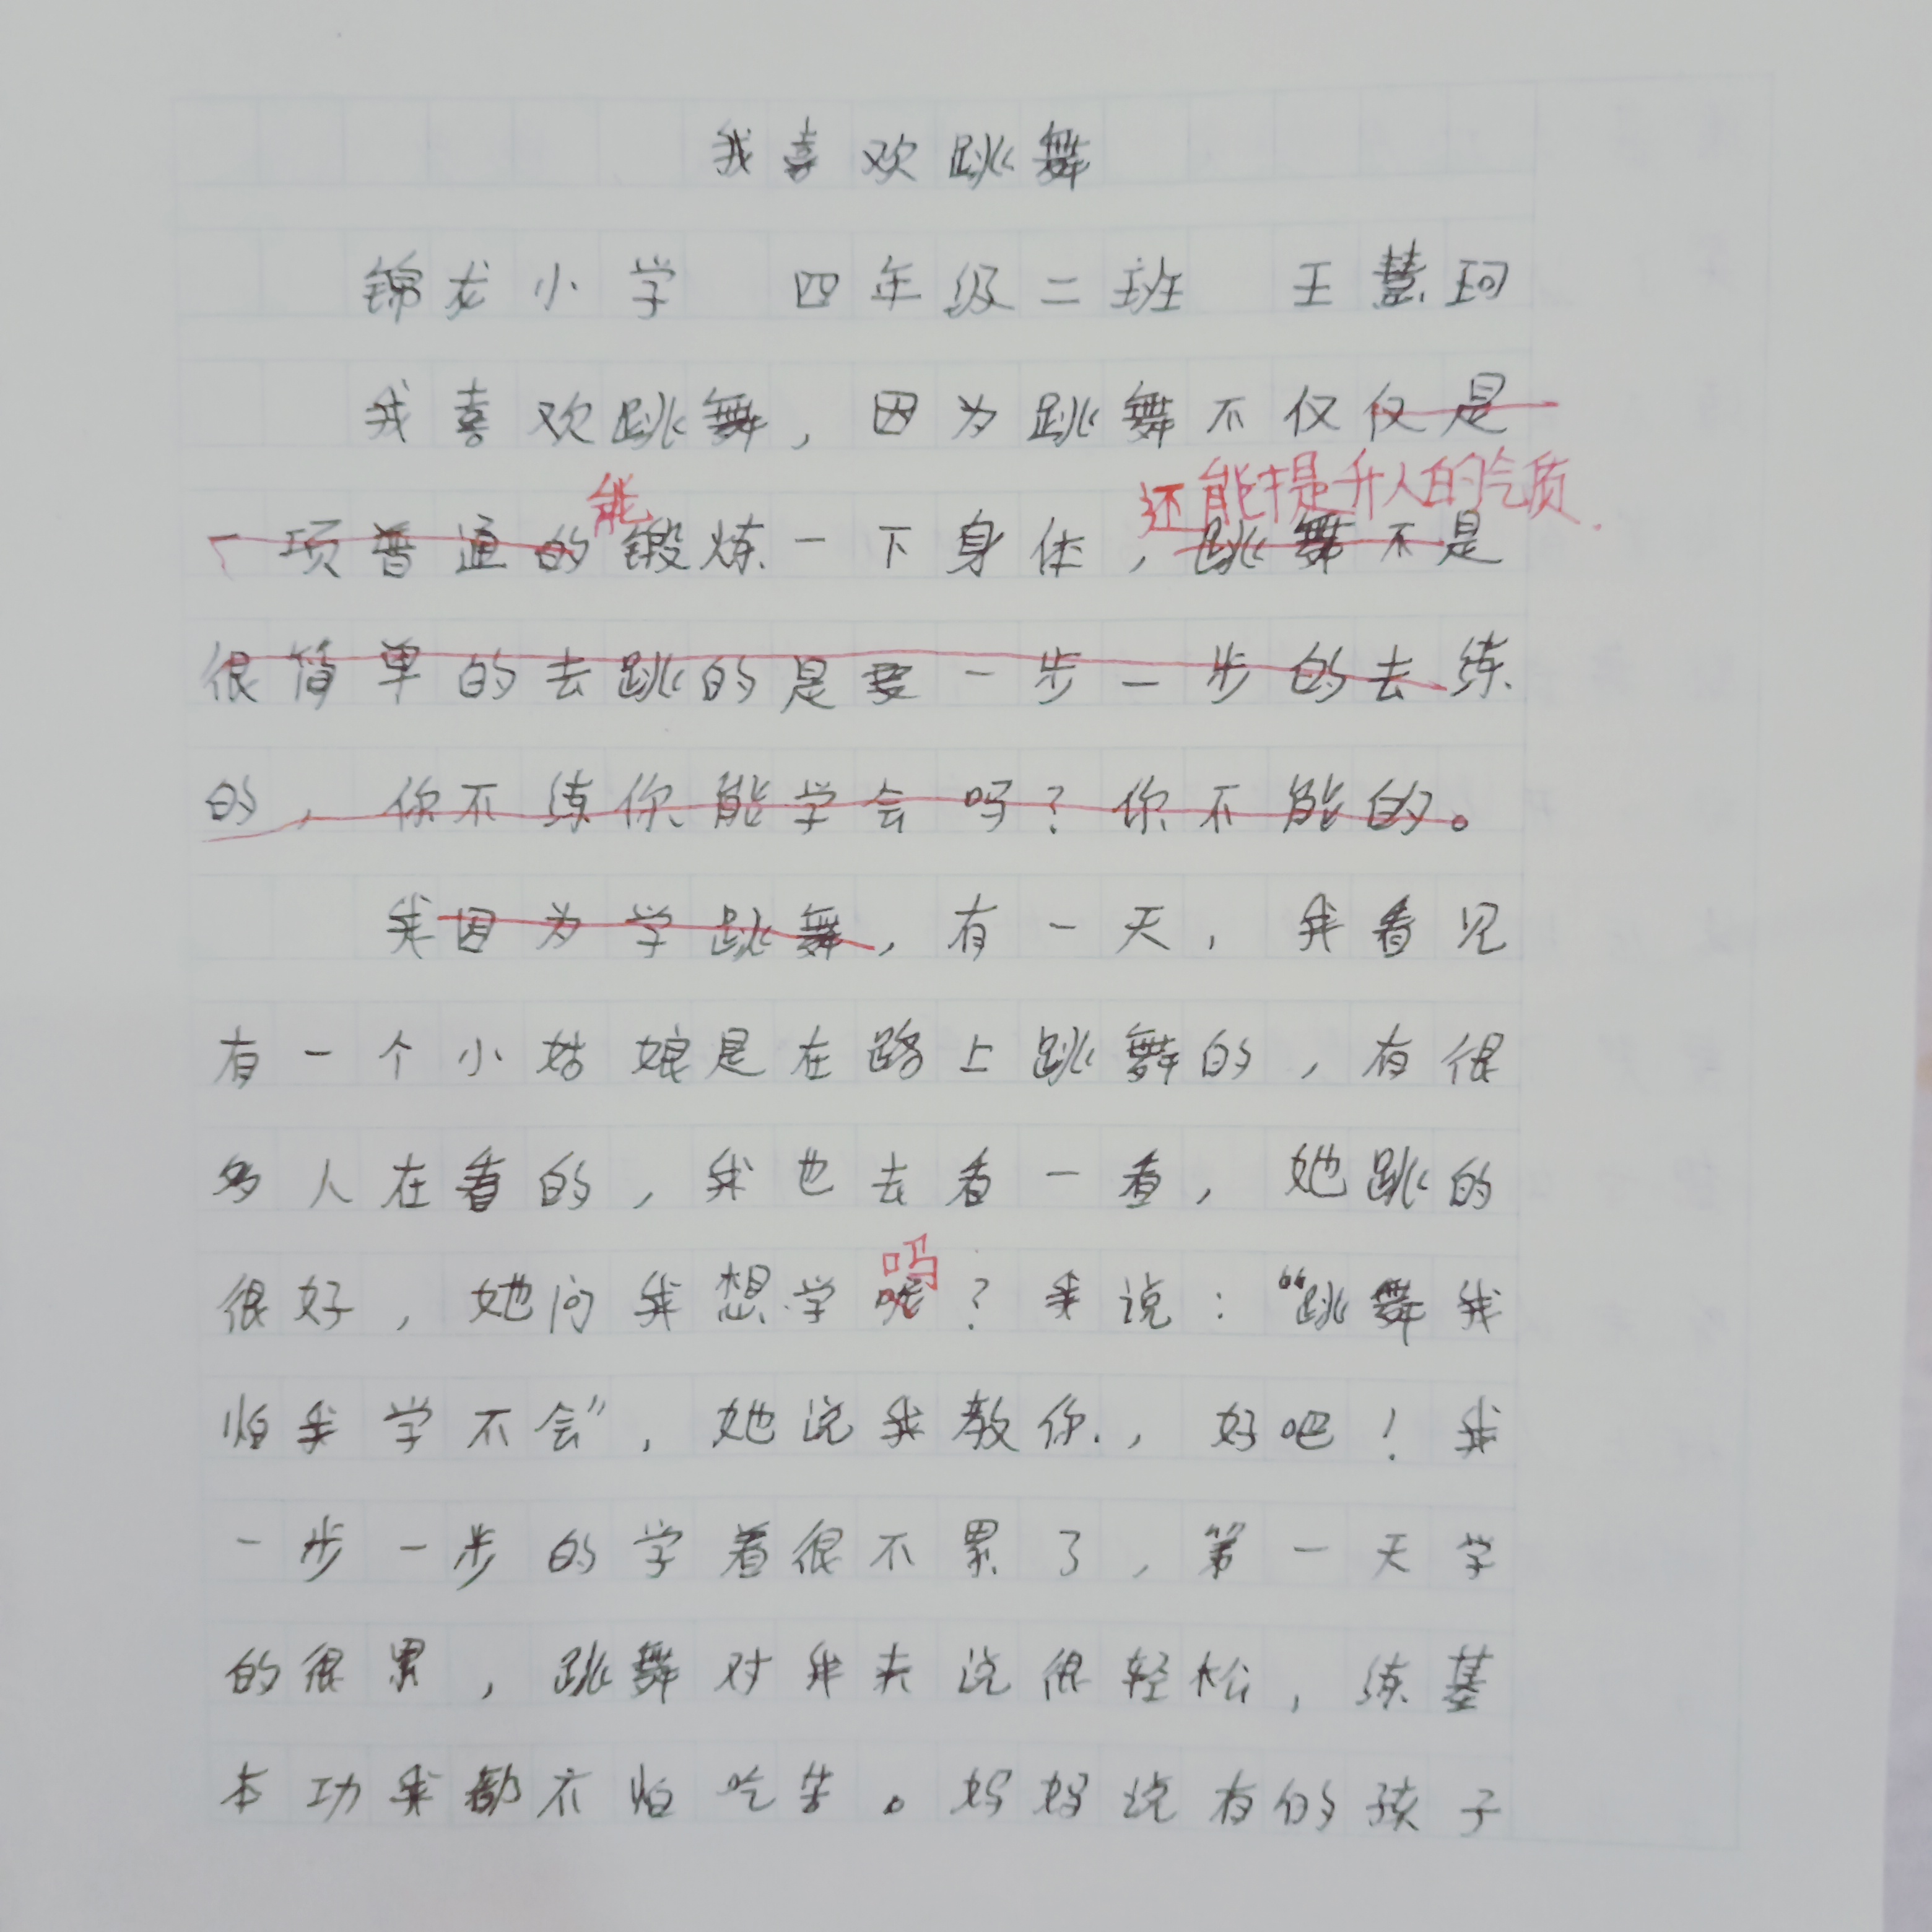 我喜欢跳舞
锦龙小学 四年级二班 王慧珂
我喜欢跳舞，因为跳舞不仅仅是
能 还能提升人的气质.
一项普通的锻炼一下身体，跳舞不是
很简单的去跳的是要一步一步的去练
的，你不练你能学会吗？你不能的。
我因为学跳舞，有一天，我看见
有一个小姑娘是在路上跳舞的，有很
多人在看的，我也去看一看，她跳的
吗
很好，她问我想学呢？我说：“跳舞我
怕我学不会”，她说我教你，好吧！我
一步一步的学着很不累了，第一天学
的很累，跳舞对我来说很轻松，练基
本功我都不怕吃苦。妈妈说有的孩子